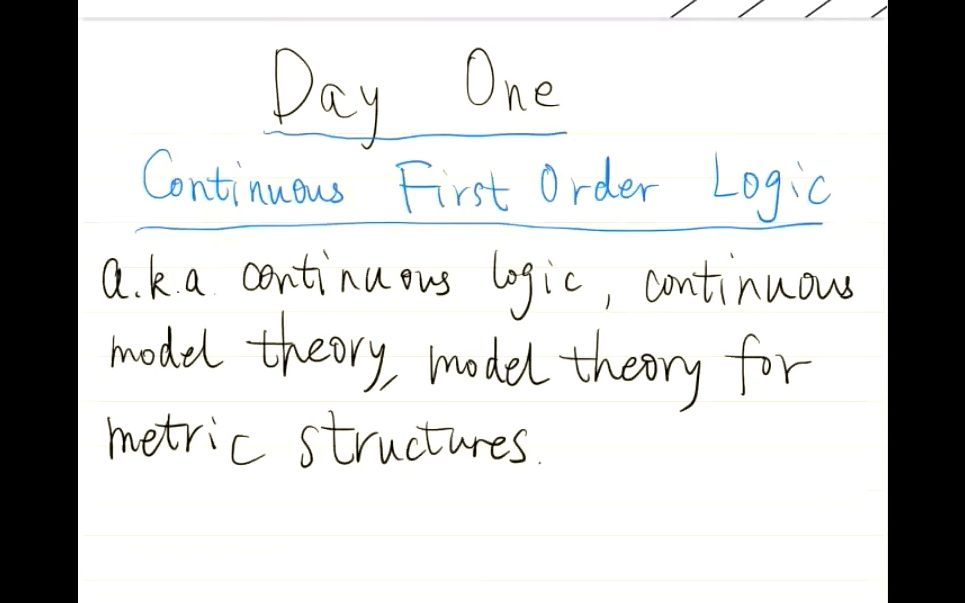 Day One
Continuous First Order Logic
a.k.a. continuous logic, continuous
model theory, model theory for
metric structures.